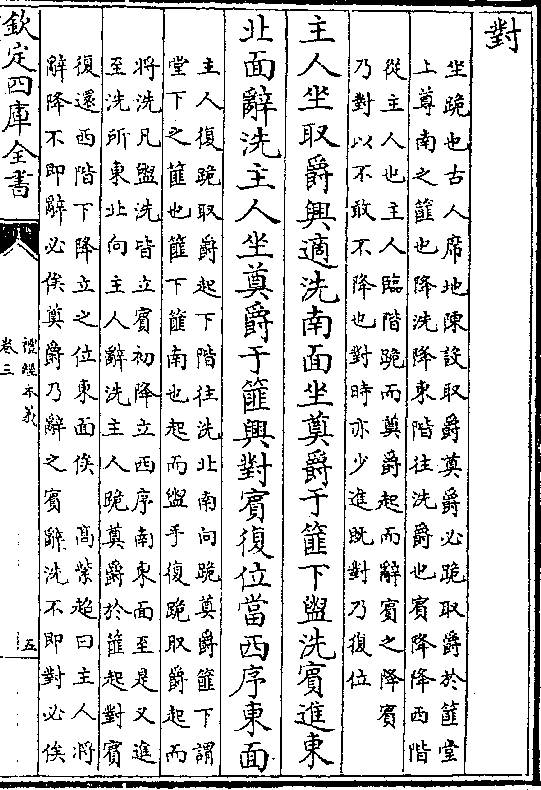 對
坐跪也古人席地陳設取爵奠爵必跪取爵於篚堂
上尊南之篚也降洗降東階往洗爵也賓降降西階
從主人也主人臨階跪而奠爵起而辭賓之降賓
乃對以不敢不降也對時亦少進既對乃復位
主人坐取爵興適洗南面坐奠爵于篚下盥洗賓進東
北面辭洗主人坐奠爵于篚興對賓復位當西序東面
主人復跪取爵起下階往洗北南向跪奠爵篚下謂
堂下之篚也篚下篚南也起而盥手復跪取爵起而
將洗凡盥洗皆立賓初降立西序南東面至是又進
至洗所東北向主人辭洗主人跪奠爵於篚起對賓
復還西階下降立之位東面俟 高紫超曰主人將
辭降不即辭必俟奠爵乃辭之賓辭洗不即對必俟
欽定四庫全書
禮經本義
卷三
五